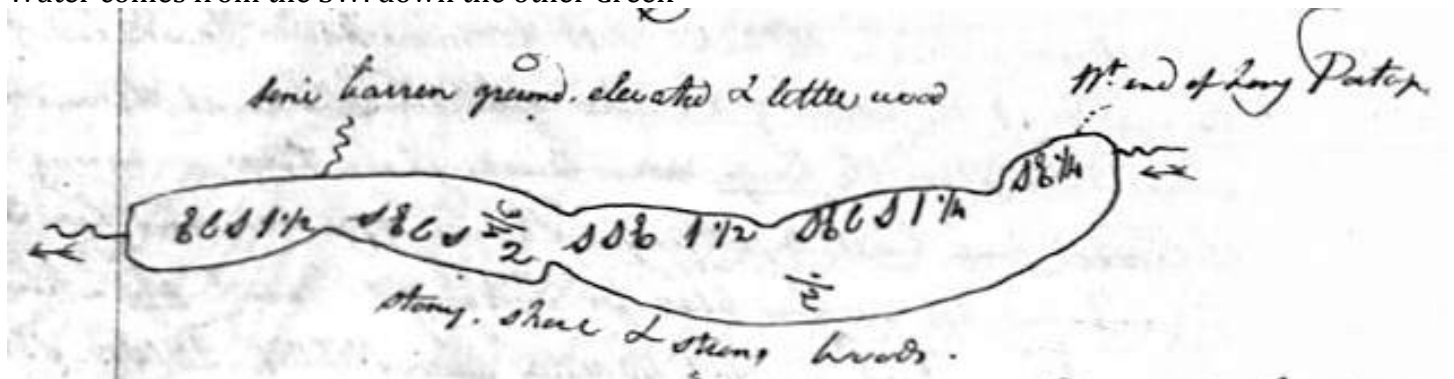 Water comes from the SW. down the other Green
semi barren ground. elevated & little wood
Nt. end of Long Portage
SE 1/4
EbS 1 1/2 SEbS SSE 1 1/2 SEbS 1 1/4
2
stony. shore & strong woods.